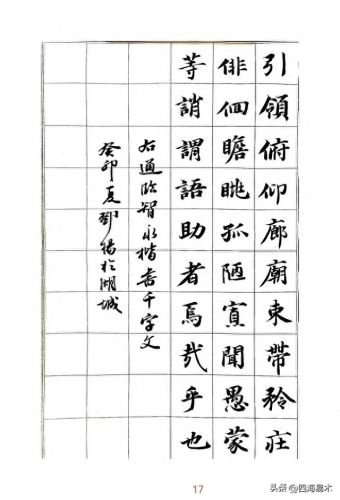 引領俯仰廊廟束帶矜莊
俳佪瞻眺孤陋寡聞愚蒙
等誚謂語助者焉哉乎也
右通臨智永楷書千字文
癸卯夏鄧於湖城
17
头条 @四海易木